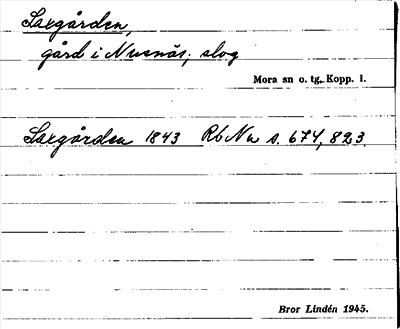 Laxgården,
gård i Nusnäs, slog
Mora sn o. tg, Kopp. l.
Laxgården 1843 Rb Nu s. 674, 823.
Bror Lindén 1945.